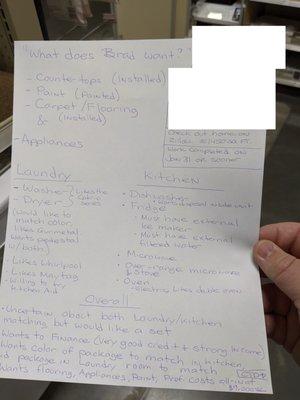 "What does Brad want?"
- Countertops (Installed)
- Paint (Painted)
- Carpet/Flooring
& (Installed)
- Appliances
Check out home on
Work completed on
Jan 31 or sooner
Laundry
- Washer
- Dryer
(would like to
match color)
Likes Gunmetal
Wants pedestal
w/ both
- Likes Whirlpool
- Likes Maytag
- Willing to try
Kitchen Aid
Kitchen
• Dishwasher
• Fridge
• Must have external
ice maker
• Must have external
filtered water
• Microwave
• Over-range microwave
& stove
• Oven
Electric Likes double oven
Overall
• Uncertain about both Laundry/Kitchen
matching but would like a set
Wants to Finance (Very good cred + strong income)
Wants color of package to match in kitchen
package in Laundry room to match
Wants flooring, Appliances, Paint, costs all-in at